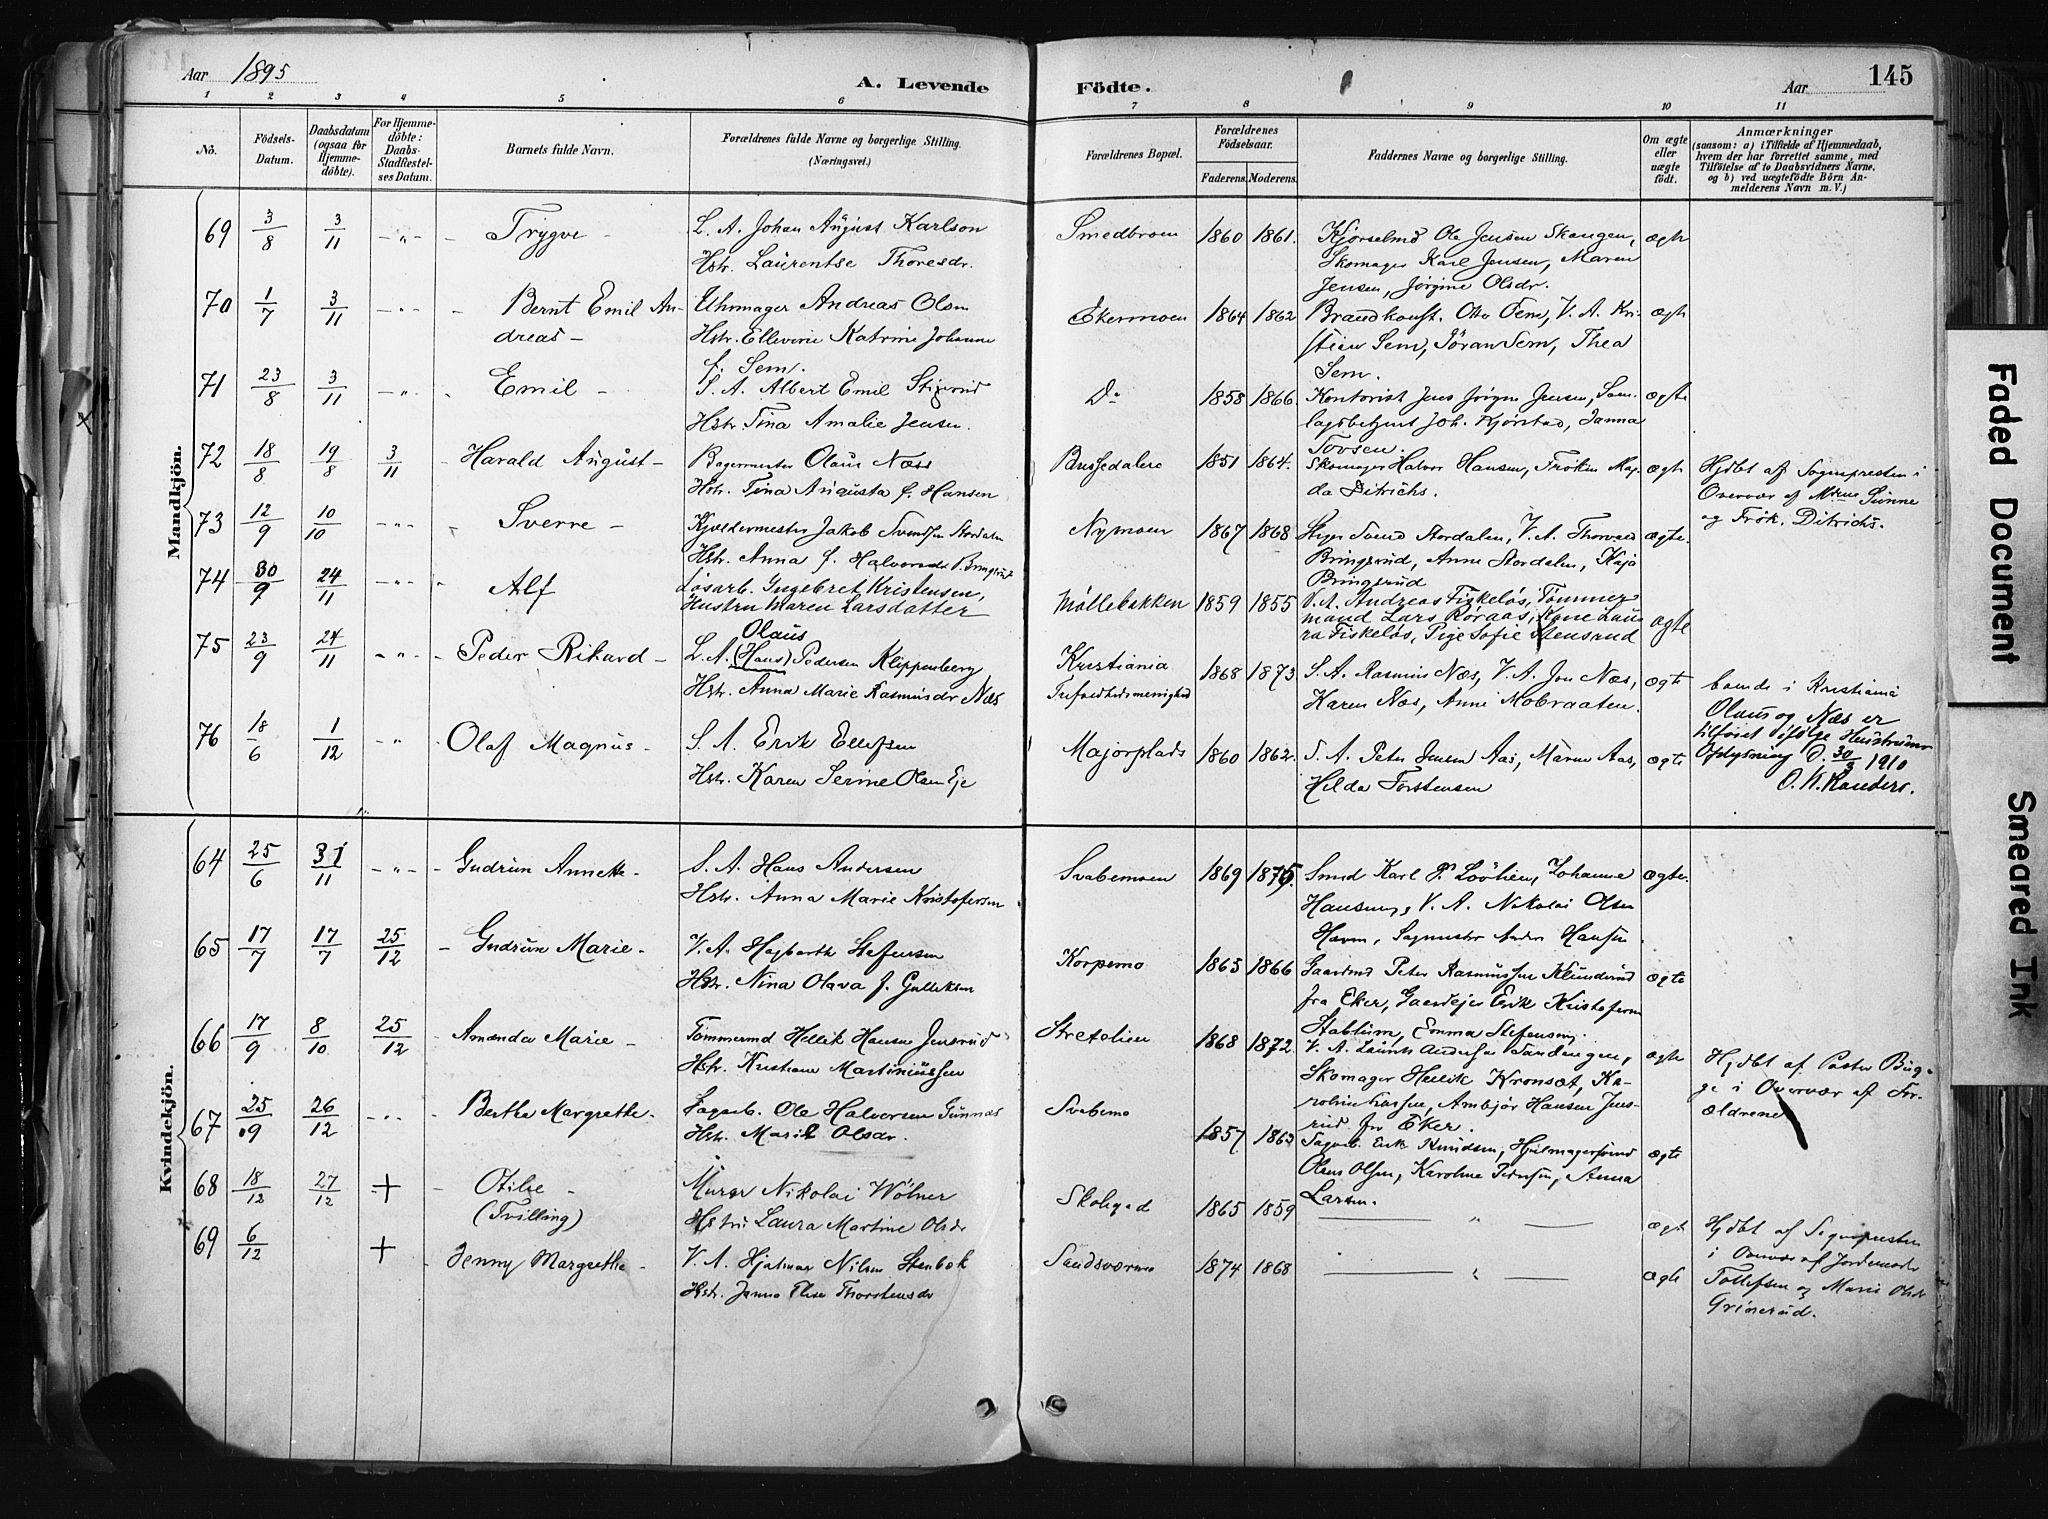 Aar 1895
A. Levende
Födte.
Aar
145
1 2 3 4 5 6 7 8 9 10 11
No.
Födsels-Datum.
Daabsdatum (ogsaa for Hjemmedöbte).
For Hjemmedöbte: Daabs-Stadfestelses Datum.
Barnets fulde Navn.
Forældrenes fulde Navne og borgerlige Stilling. (Næringsvei.)
Forældrenes Bopæl.
Forældrenes Födselsaar.
Faderens. Moderens.
Faddernes Navne og borgerlige Stilling.
Om ægte eller uægte födt.
Anmærkninger
(saasom: a) i Tilfælde af Hjemmedaab, hvem der har forrettet samme, med Tilföielse af to Daabsvidners Navne, og b) ved uægtefödte Börn Anmelderens Navn m. V.)
Mandkjön.
69 3/8 3/11 -"- Trygve - L. A. Johan August Karlson
Hstr. Laurentse Thoresdr.
Smedbroen 1860 1861. Kjørselmd Ole Jensen Skangen,
Skomager Karl Jensen, Maren
Jensen, Jørgine Olsdr.
ægte
70 1/7 3/11 -"- Bernt Emil Andreas -
Uhrmager Andreas Olsen
Hstr. Elleverine Katrine Johanne
f. Sem.
Ekermoen 1864 1862 Brandkonst. Otto Sem, V. A. Kristian Sem, Jöran Sem, Thea
Sem.
ægte
71 23/8 3/11 -"- Emil - S. A. Albert Emil Stigerud
Hstr. Tina Amalie Jensen.
Do 1858 1866. Kontorist Jens Jörgen Jensen, Samlagsbetjent Joh. Kjörstad, Janna
Tovsen.
ægte
72 18/8 19/8 3/11 Harald August - Bagermester Olaus Næss
Hstr. Tina Augusta f. Hansen
Bussedalene 1851 1864. Skomager Halvor Hansen, Fröken Magda Ditrichs.
ægte Hjdbt af Sognepresten i
Overvær af Mme Sunne
og Frök. Ditrichs.
73 12/9 10/10 -"- Sverre - Kjældermester Jakob Svendsen Stordalen
Hstr. Anna f. Halvorsdr Bringsrud
Nymoen 1867 1868 Stiger Svend Stordalen, V. A. Thorvald
Bringsrud, Anne Stordalen, Kaja
Bringsrud
ægte.
74 30/9 24/11 -"- Alf Løsarb. Ingebret Kristensen,
Hustru Maren Larsdatter
Møllebakken 1859 1855 V. A. Andreas Fiskeløs, Tømmermand Lars Røraas, Kone Laura Fiskeløs, Pige Sofie Stensrud
ægte
75 23/9 24/11 -"- Peder Rikard - Olaus
L. A. (Hans) Pedersen Klippenberg
Hstr. Anna Marie Rasmusdr Næs
Kristiania
Trefoldhedsmenighed
1868 1873 S. A. Rasmus Næs, V. A. Jon Næs,
Karen Næs, Anne Mobraaten.
ægte boende i Kristiania
Olaus og Næs er
tilføiet ifølge Hustruens
Oplysning d. 30/3 1910
O. W. Randers.
76 18/6 1/12 -"- Olaf Magnus - S. A. Erik Ellefsen
Hstr. Karen Serine Olsen Eje
Majorplads 1860 1862. S. A. Peter Jensen Aas, Maren Aas,
Hilda Torstensen
ægte
Kvindekjön.
64 25/6 31/11 -"- Gudrun Annette - S. A. Hans Andersen
Hstr. Anna Marie Kristofersen
Svabemoen 1869 1875. Smed Karl P. Lövlien, Johanne
Hansen, V. A. Nikolai Olsen
Havn, Sagmester Anders Hansen
ægte.
65 17/7 17/7 25/12 - Gudrun Marie - V. A. Hagbarth Stefensen
Hstr. Nina Olava f. Gulliksen
Korpemo 1865 1866 Gaardmd Peter Rasmussen Klunderud
fra Eker, Gaardejer Erik Kristofersen
Stablum, Emma Stefensen.
ægte
66 17/9 8/10 25/12 Amanda Marie - Tømmermd Hellik Hansen Jensrud
Hstr. Kristiane Martiniussen
Stretelien 1868 1872. V. A. Laurits Andersen Sandengen,
Skomager Hellik Kronsæt, Karoline Hansen, Ambjør Hansen Jensrud fra Eker.
ægte Hjdbt af Pastor Bugge i Overvær af Forældrene
67 25/9 26/12 -"- Bertha Margrethe - Sagarb. Ole Halversen Gunnæs
Hstr. Marie Olsdr.
Svabemo 1857 1863 Sagarb. Erik Knudsen, Hjulmagersvend
Olaus Olsen, Karoline Pedersen, Anna
Larsen.
ægte
68 18/12 27/12 + Otilie -
(Tvilling)
Murer Nikolai Wölner
Hstru Laura Martine Olsdr
Skolegad 1865 1859 — " —
ægte Hjdbt af Sognepresten
i Overvær af Jordemoder
Tollefsen og Marie Olsdr
Grinerud.
69 6/12 + Jenny Margrethe - V. A. Hjalmar Nilsen Stenbæk
Hstr. Janna Elise Thorstensdr
Sandsværmo 1874 1868 — " — ægte
Faded Document
Smeared Ink